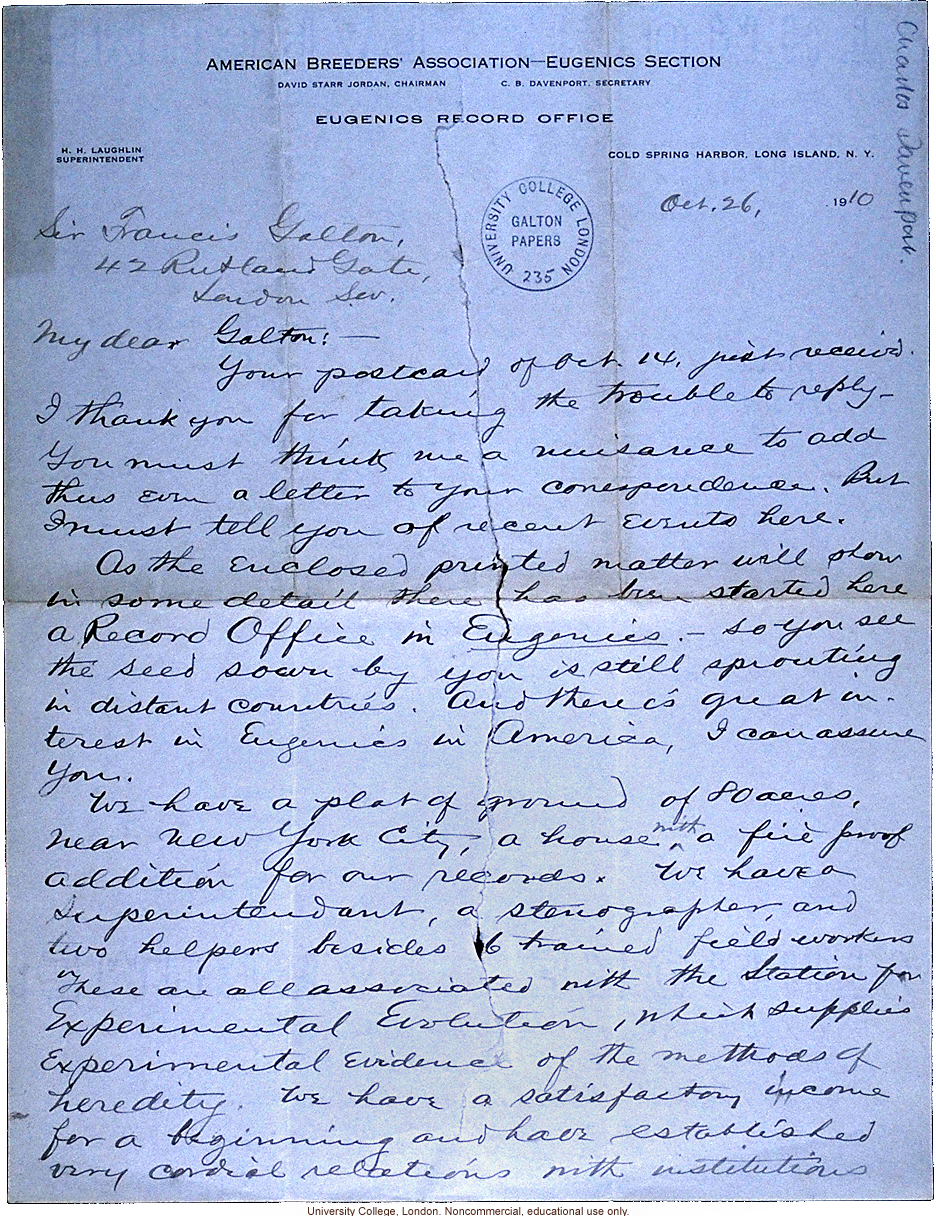 AMERICAN BREEDERS' ASSOCIATION—EUGENICS SECTION
DAVID STARR JORDAN, CHAIRMAN C. B. DAVENPORT, SECRETARY
EUGENICS RECORD OFFICE
H. H. LAUGHLIN
SUPERINTENDENT
COLD SPRING HARBOR, LONG ISLAND, N. Y.
Charles Davenport.
Oct. 26, 1910
UNIVERSITY COLLEGE LONDON
GALTON
PAPERS
235
Sir Francis Galton,
42 Rutland Gate,
London S.W.
My dear Galton:—
Your postcard of Oct. 14, just received.
I thank you for taking the trouble to reply—
You must think me a nuisance to add
thus even a letter to your correspondence. But
I must tell you of recent events here.
As the enclosed printed matter will show
in some detail there has been started here
a Record Office in Eugenics. — so you see
the seed sown by you is still sprouting
in distant countries. And there's great in-
terest in Eugenics in America, I can assure
you.
We have a plat of ground of 80 acres,
near New York City, a house with a fire proof
addition for our records. We have a
Superintendant, a stenographer, and
two helpers besides 6 trained field-workers
These are all associated with the Station for
Experimental Evolution, which supplies
experimental evidence of the methods of
heredity. We have a satisfactory income
for a beginning and have established
very cordial relations with institutions
University College, London. Noncommercial, educational use only.